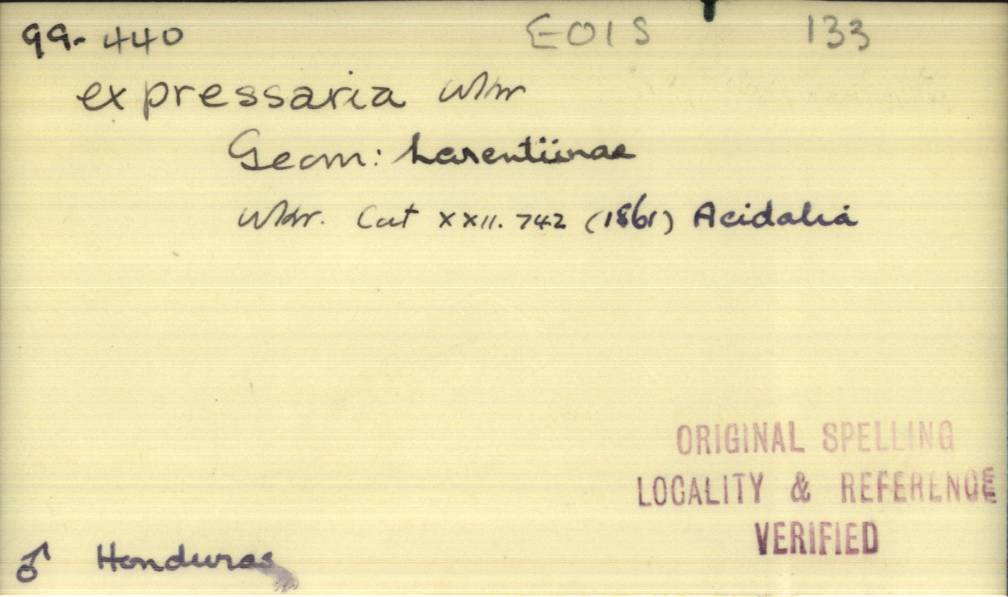 99-440 EOIS 133
expressaria Wlkr
Geom: Larentiinae
Wlkr. Cat XXII. 742 (1861) Acidalia
ORIGINAL SPELLING
LOCALITY & REFERENCE
VERIFIED
♂ Honduras